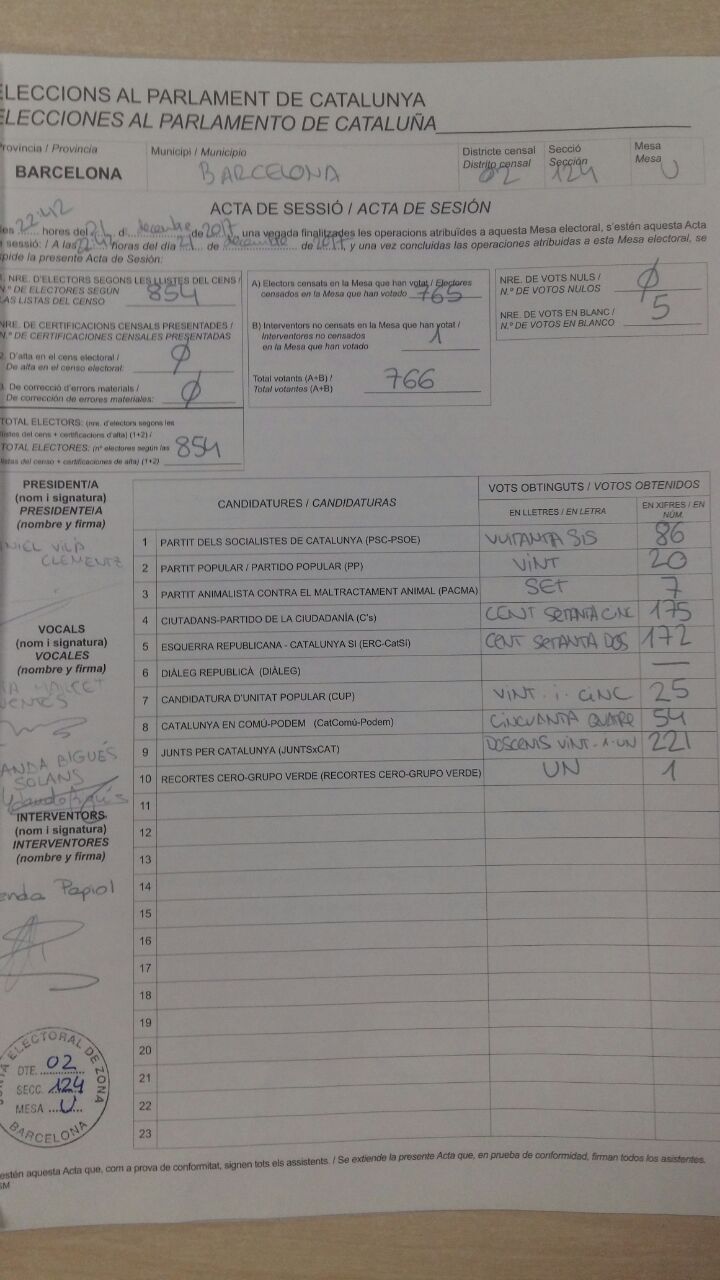 ELECCIONS AL PARLAMENT DE CATALUNYA
ELECCIONES AL PARLAMENTO DE CATALUÑA
Provincia / Provincia
BARCELONA
Municipi / Municipio
BARCELONA
Districte censal
Distrito censal
02
Secció
Sección
124
Mesa
Mesa
U
ACTA DE SESSIÓ / ACTA DE SESIÓN
les 22:42 hores del 21 d. desembre de 2017 una vegada finalitzades les operacions atribuïdes a aquesta Mesa electoral, s'estén aquesta Acta
sessió: / A las 22:42 horas del día 21 de desembre de 2017, y una vez concluidas las operaciones atribuidas a esta Mesa electoral, se
pide la presente Acta de Sesión:
NRE. D'ELECTORS SEGONS LES LLISTES DEL CENS /
N.º DE ELECTORES SEGÚN
LAS LISTAS DEL CENSO
854
NRE. DE CERTIFICACIONS CENSALS PRESENTADES /
N.º DE CERTIFICACIONES CENSALES PRESENTADAS
2. D'alta en el cens electoral /
De alta en el censo electoral:
Ø
De correcció d'errors materials /
De corrección de errores materiales:
Ø
TOTAL ELECTORS: (nre. d'electors segons les
llistes del cens + certificacions d'alta) (1+2) /
TOTAL ELECTORES: (nº electores según las
listas del censo + certificaciones de alta) (1+2)
854
A) Electors censats en la Mesa que han votat / Electores
censados en la Mesa que han votado
765
B) Interventors no censats en la Mesa que han votat /
Interventores no censados
en la Mesa que han votado
1
Total votants (A+B) /
Total votantes (A+B)
766
NRE. DE VOTS NULS /
N.º DE VOTOS NULOS
Ø
NRE. DE VOTS EN BLANC /
N.º DE VOTOS EN BLANCO
5
PRESIDENT/A
(nom i signatura)
PRESIDENTE/A
(nombre y firma)
NIEL VILÀ
CLEMENTE
VOCALS
(nom i signatura)
VOCALES
(nombre y firma)
ANDA BIGUÉS
SOLANS
INTERVENTORS
(nom i signatura)
INTERVENTORES
(nombre y firma)
enda Papiol
CANDIDATURES / CANDIDATURAS
VOTS OBTINGUTS / VOTOS OBTENIDOS
EN LLETRES / EN LETRA
EN XIFRES / EN NÚM.
1 PARTIT DELS SOCIALISTES DE CATALUNYA (PSC-PSOE) VUITANTA SIS 86
2 PARTIT POPULAR / PARTIDO POPULAR (PP) VINT 20
3 PARTIT ANIMALISTA CONTRA EL MALTRACTAMENT ANIMAL (PACMA) SET 7
4 CIUTADANS-PARTIDO DE LA CIUDADANÍA (C's) CENT SETANTA CINC 175
5 ESQUERRA REPUBLICANA - CATALUNYA SI (ERC-CatSí) CENT SETANTA DOS 172
6 DIÀLEG REPUBLICÀ (DIÀLEG) —
7 CANDIDATURA D'UNITAT POPULAR (CUP) VINT-I-CINC 25
8 CATALUNYA EN COMÚ-PODEM (CatComú-Podem) CINCUANTA QUATRE 54
9 JUNTS PER CATALUNYA (JUNTSxCAT) DOSCENTS VINT-I-UN 221
10 RECORTES CERO-GRUPO VERDE (RECORTES CERO-GRUPO VERDE) UN 1
11
12
13
14
15
16
17
18
19
20
21
22
23
JUNTA ELECTORAL DE ZONA
DTE. 02
SECC. 124
MESA U
BARCELONA
estén aquesta Acta que, com a prova de conformitat, signen tots els assistents. / Se extiende la presente Acta que, en prueba de conformidad, firman todos los asistentes.